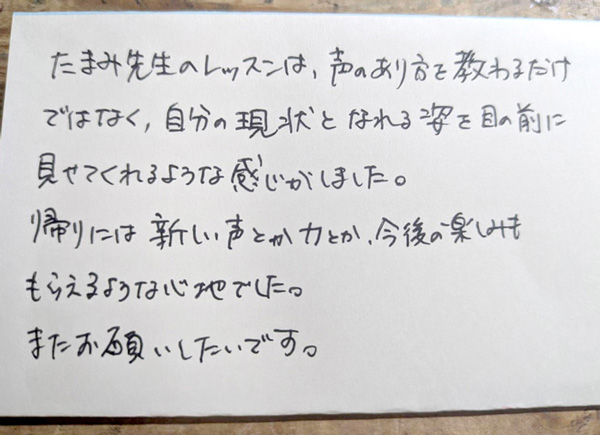 たまみ先生のレッスンは、声のあり方を教わるだけ
ではなく、自分の現状となれる姿を目の前に
見せてくれるような感じがしました。
帰りには新しい声とか力とか、今後の楽しみも
もらえるような心地でした。
またお願いしたいです。